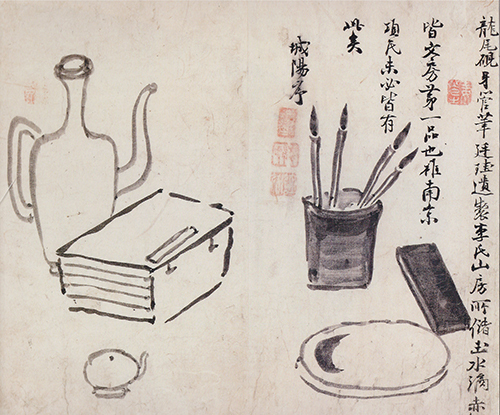 龍尾硯牙管筆廷珪遺製李氏山房所儲玉水滴亦
皆文房第一品也雖南
項氏未必皆有
此矣
城陽